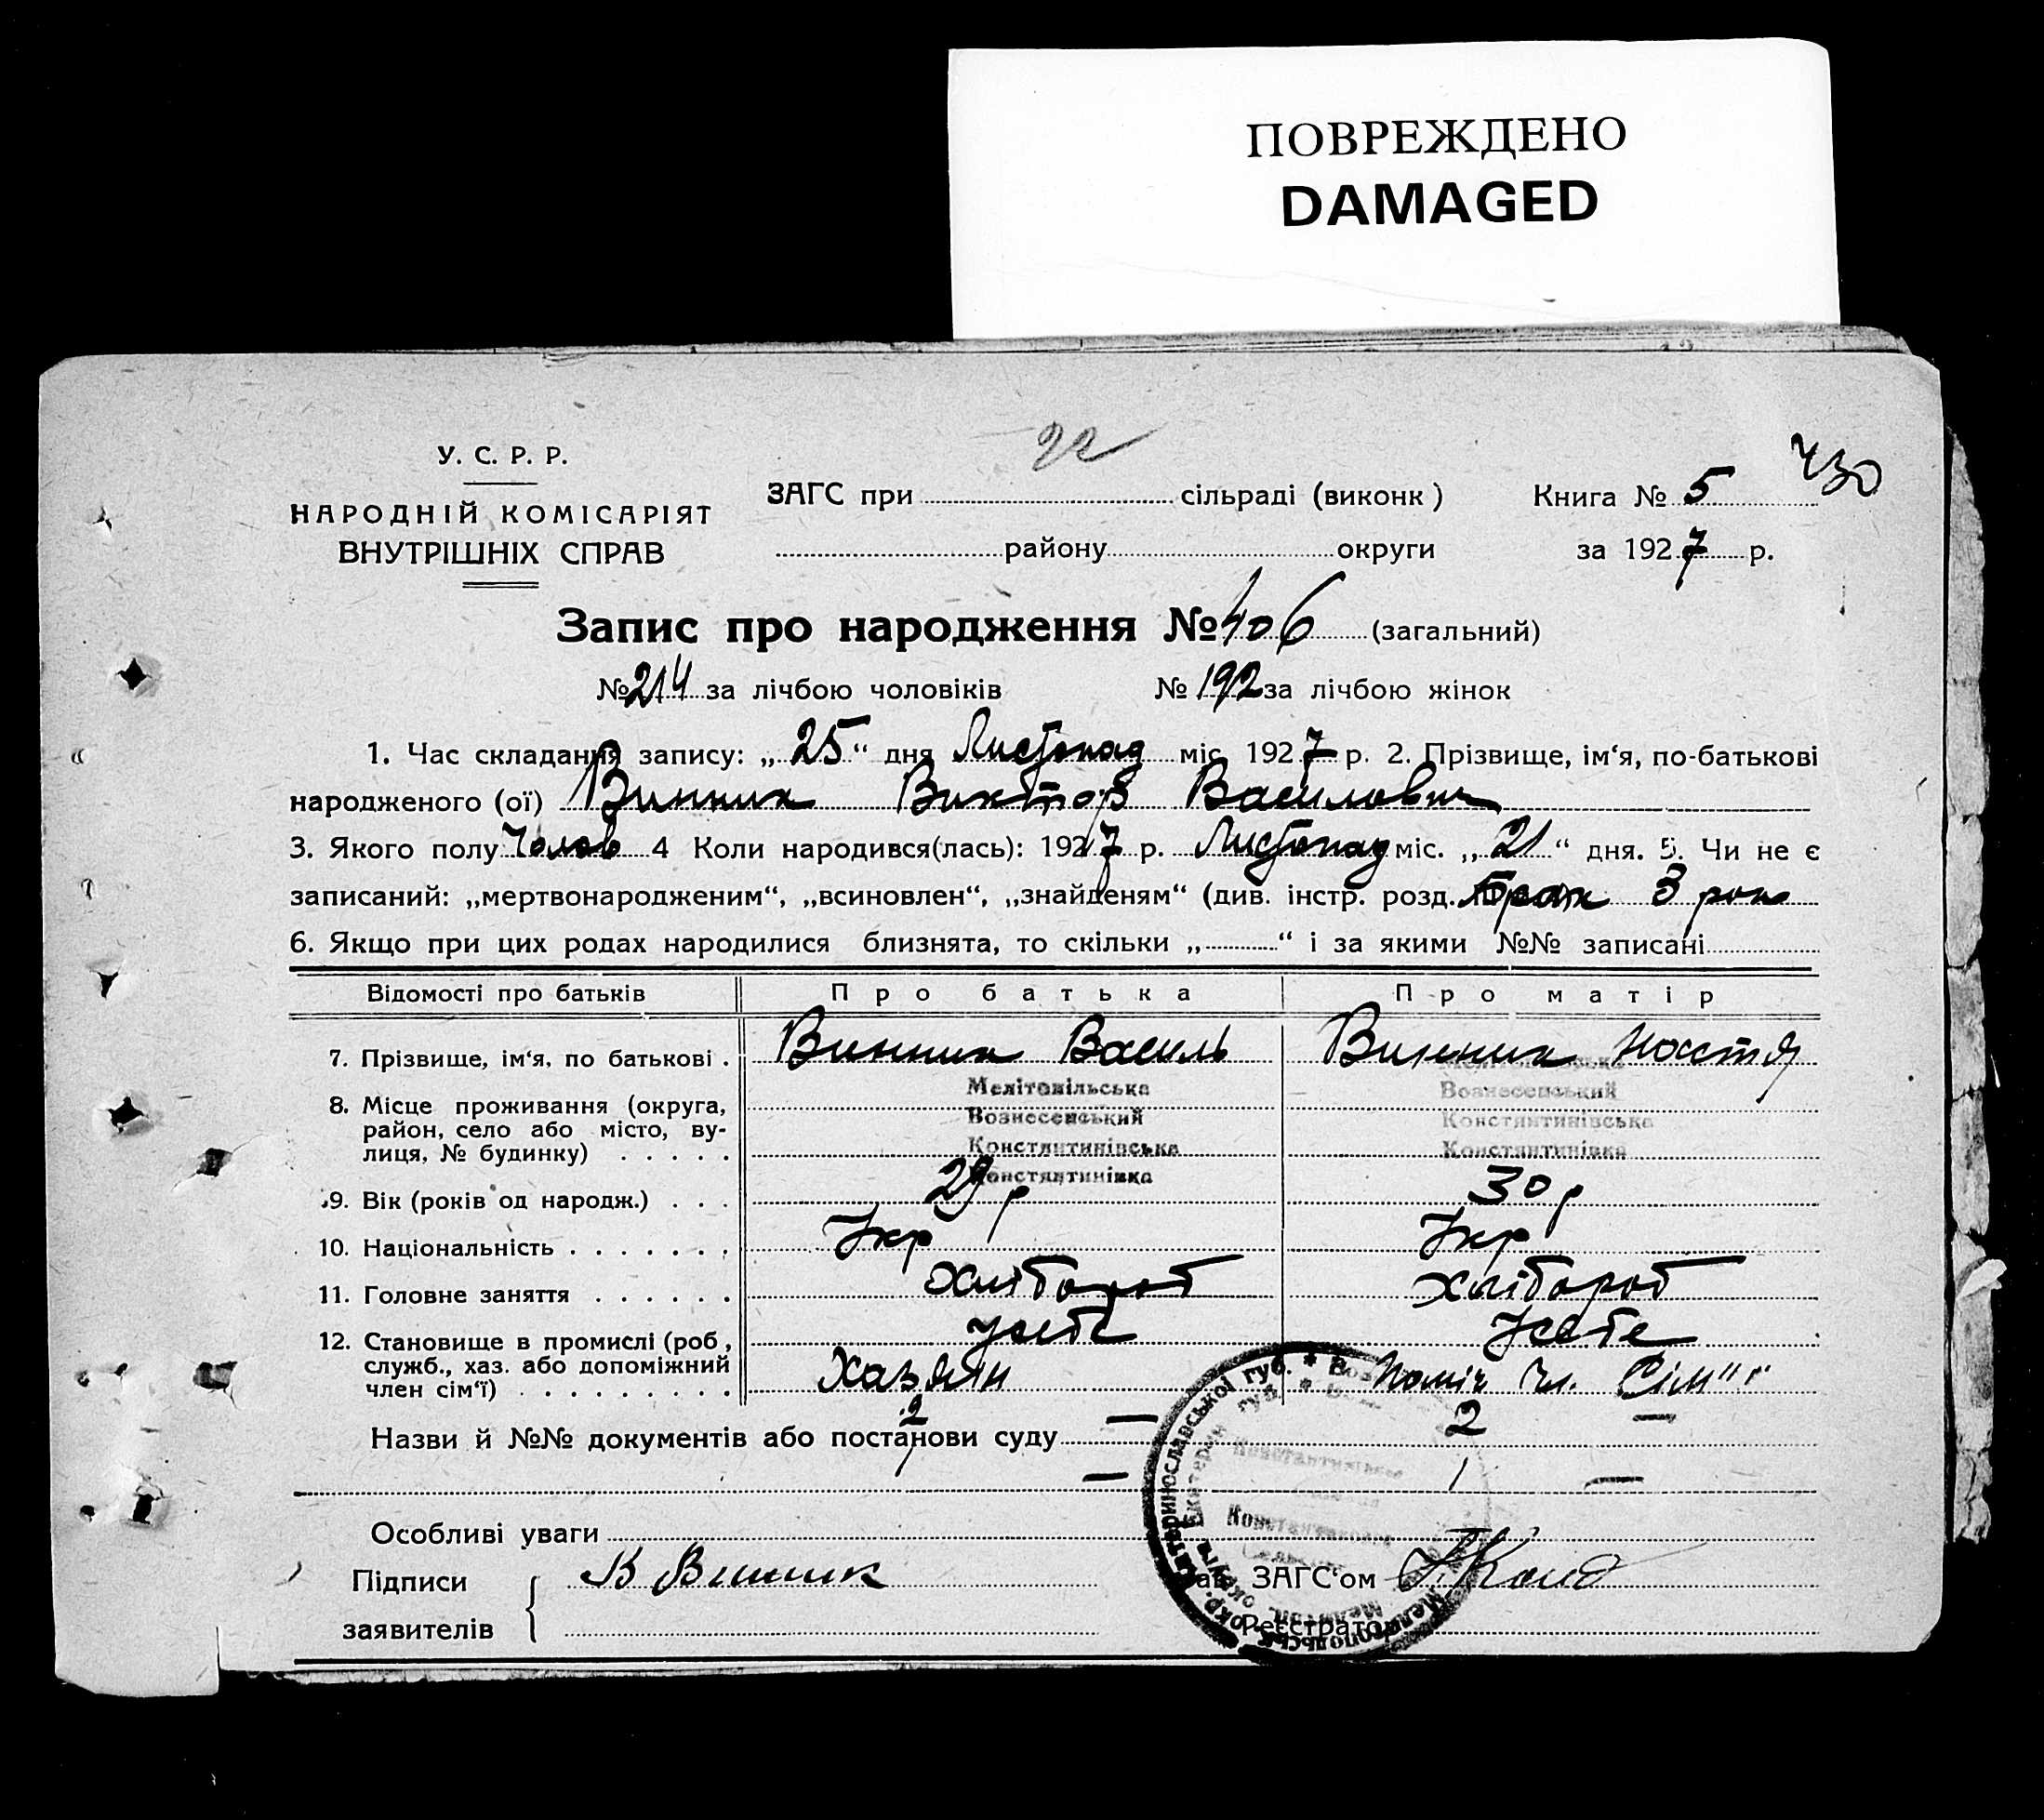 ПОВРЕЖДЕНО
DAMAGED
У. С. Р. Р.
НАРОДНІЙ КОМІСАРІЯТ
ВНУТРІШНІХ СПРАВ
ЗАГС при сільраді (виконк)
району округи
Книга № 5
430
за 1927 р.
Запис про народження № 406 (загальний)
№ 214 за лічбою чоловіків № 192 за лічбою жінок
1. Час складання запису: „25“ дня Листопад міс. 1927 р. 2. Прізвище, ім‘я, по-батькові
народженого (ої) Винник Виктор Василович
3. Якого полу Чолов 4 Коли народився(лась): 1927 р. Листопад міс. „21“ дня. 5. Чи не є
записаний: „мертвонародженим“, „всиновлен“, „знайденям“ (див. інстр. розд. 3 рок
6. Якщо при цих родах народилися близнята, то скільки „ “ і за якими №№ записані
Відомості про батьків Про батька Про матір
7. Прізвище, ім‘я, по батькові . Винник Василь Винник Настя
8. Місце проживання (округа, район, село або місто, вулиця, № будинку) . . . . .
Мелітопільська Мелітопільська
Вознесенський Вознесенський
Констянтинівська Констянтинівська
Констянтинівка Констянтинівка
9. Вік (років од народж.) . . . 29 р 30 р
10. Національність . . . . . . . Укр Укр
11. Головне заняття . . . . . . Хлібороб Хлібороб
12. Становище в промислі (роб., служб., хаз. або допоміжний член сім‘ї) . . . . . . . . .
Хазяин Поміч чл. Сім
2 — 2 —
Назви й №№ документів або постанови суду
1 — 1 —
Особливі уваги
Підписи заявителів В Винник
Зав. ЗАГС‘ом
Реєстратор